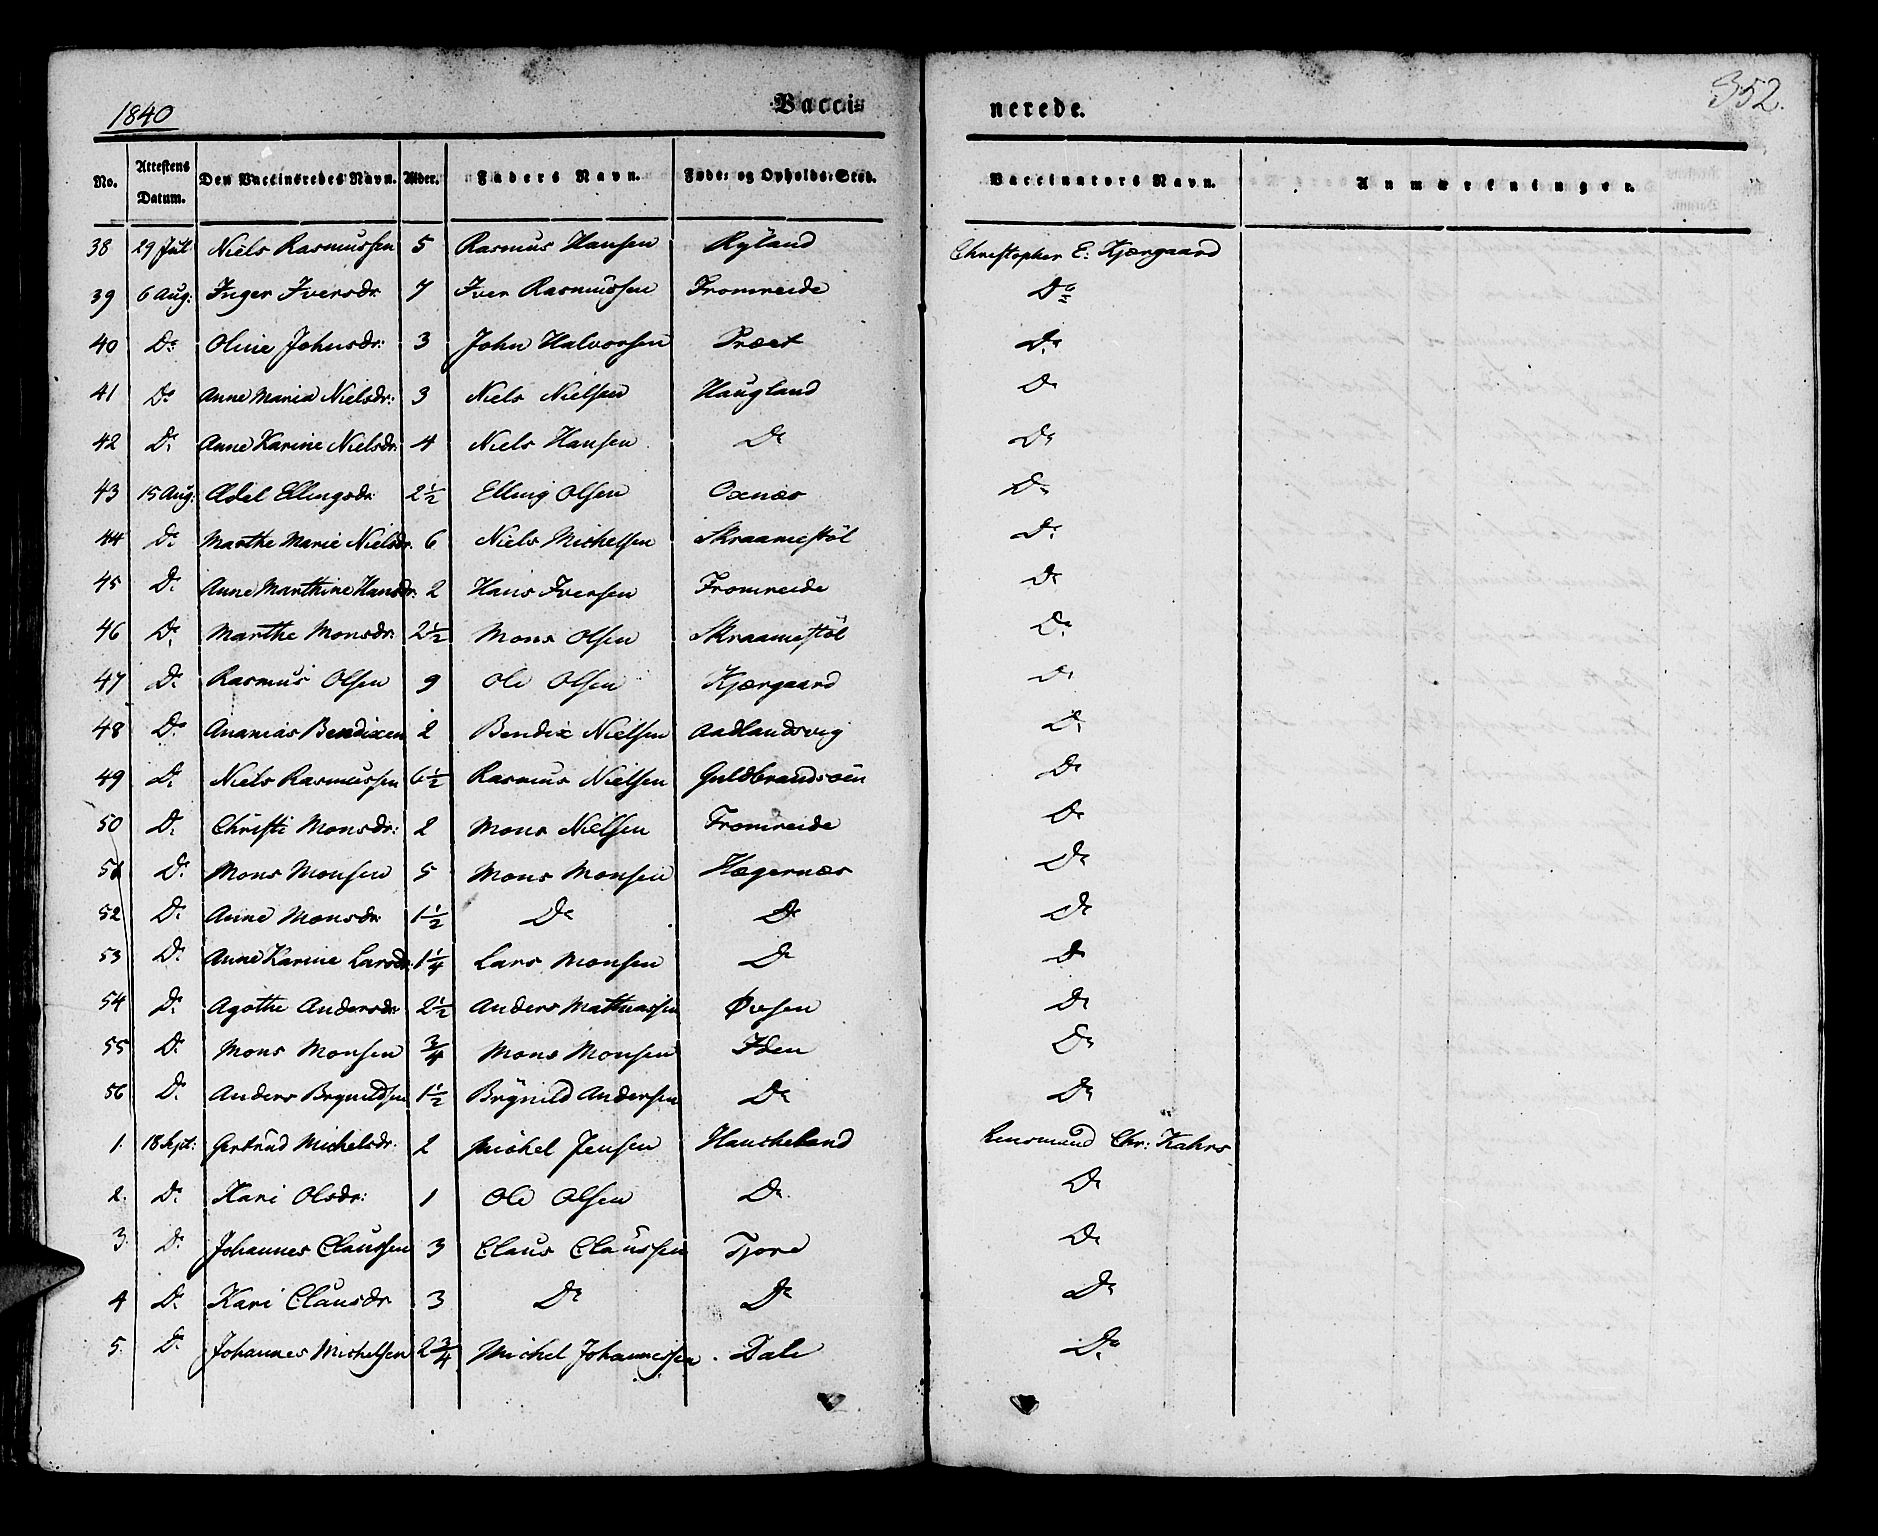 1840 Vacci= nerede. 352.
No. Attestens Datum. Den Vaccineredes Navn. Alder. Faders Navn. Føde- og Opholds-Sted. Vaccinators Navn. Anmærkninger.
38 29 Jul Niels Rasmussen 5 Rasmus Hansen Ryland Christopher E. Kjærgaard
39 6 Aug: Inger Iversdr 7 Iver Rasmussen Fromreide Do
40 Do Oline Johnsdr: 3 John Halvorsen Træet Do
41 Do Anne Maria Nielsdr: 3 Niels Nielsen Haugland Do
42 Do Anne Karine Nielsdr: 4 Niels Hansen Do Do
43 15 Aug: Adel Ellingsdr: 2½ Elling Olsen Oxnæs Do
44 Do Marthe Marie Nielsdr. 6 Niels Michelsen Skraamestöl Do
45 Do Anne Marthine Hansdr: 2 Hans Iversen Fromreide Do
46 Do Marthe Monsdr: 2½ Mons Olsen Skraamestöl Do
47 Do Rasmus Olsen 9 Ole Olsen Kjærgaard Do
48 Do Ananias Bendixen 2 Bendix Nielsen Aadlandsvig Do
49 Do Niels Rasmussen 6½ Rasmus Nielsen Guldbrandsöen Do
50 Do Christi Monsdr: 2 Mons Nielsen Fromreide Do
51 Do Mons Monsen 5 Mons Monsen Hægernæs Do
52 Do Anne Monsdr 1½ Do Do Do
53 Do Anne Karine Larsdr: 1¼ Lars Monsen Do Do
54 Do Agothe Andersdr 2½ Anders Mathiassen Øvsen Do
55 Do Mons Monsen ¾ Mons Monsen Iden Do
56 Do Anders Brynildsen 1½ Brynild Andersen Do Do
1. 18 Sept: Gertrud Michelsdr: 2 Michel Jensen Haucheland Lensmand Chr: Kahrs
2. Do Kari Olsdr: 1 Ole Olsen Do Do
3. Do Johannes Claussen 3 Claus Claussen Tjore Do
4 Do Kari Clausdr 3 Do Do Do
5. Do Johannes Michelsen 2¾ Michel Johannessen Dale Do